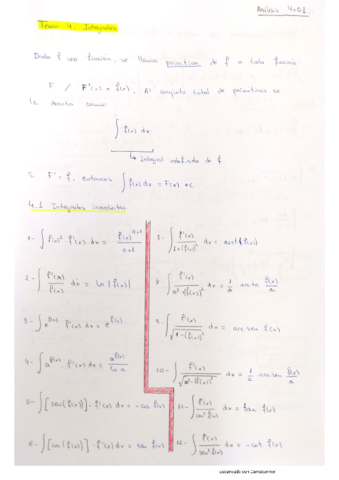 Análisis 4.01
Tema 4. Integrales
Dada f una función, se llama primitiva de f a toda función
F / F'(x) = f(x). Al conjunto total de primitivas se
le denota como:
∫ f(x) dx
↳ Integral indefinida de f.
F' = f, entonces ∫ f(x) dx = F(x) + c
4.1 Integrales inmediatas
1- ∫ f(x)ⁿ · f'(x) dx = f(x)ⁿ⁺¹ / n+1
2- ∫ f'(x) / f(x) dx = ln |f(x)|
3- ∫ e^f(x) · f'(x) dx = e^f(x)
4- ∫ a^f(x) · f'(x) dx = a^f(x) / ln a
5- ∫ [sen(f(x))] · f'(x) dx = -cos f(x)
6- ∫ [cos(f(x))] · f'(x) dx = sen f(x)
7- ∫ f'(x) / 1+(f(x))² dx = arct(f(x))
8- ∫ f'(x) / a²+(f(x))² dx = 1/a arctg f(x)/a
9- ∫ f'(x) / √1-(f(x))² dx = arc sen f(x)
10- ∫ f'(x) / √a²-(f(x))² dx = 1/a arc sen f(x)/a
11- ∫ f'(x) / cos² f(x) dx = tan f(x)
12- ∫ f'(x) / sen² f(x) dx = -cot f(x)
Escaneado con CamScanner